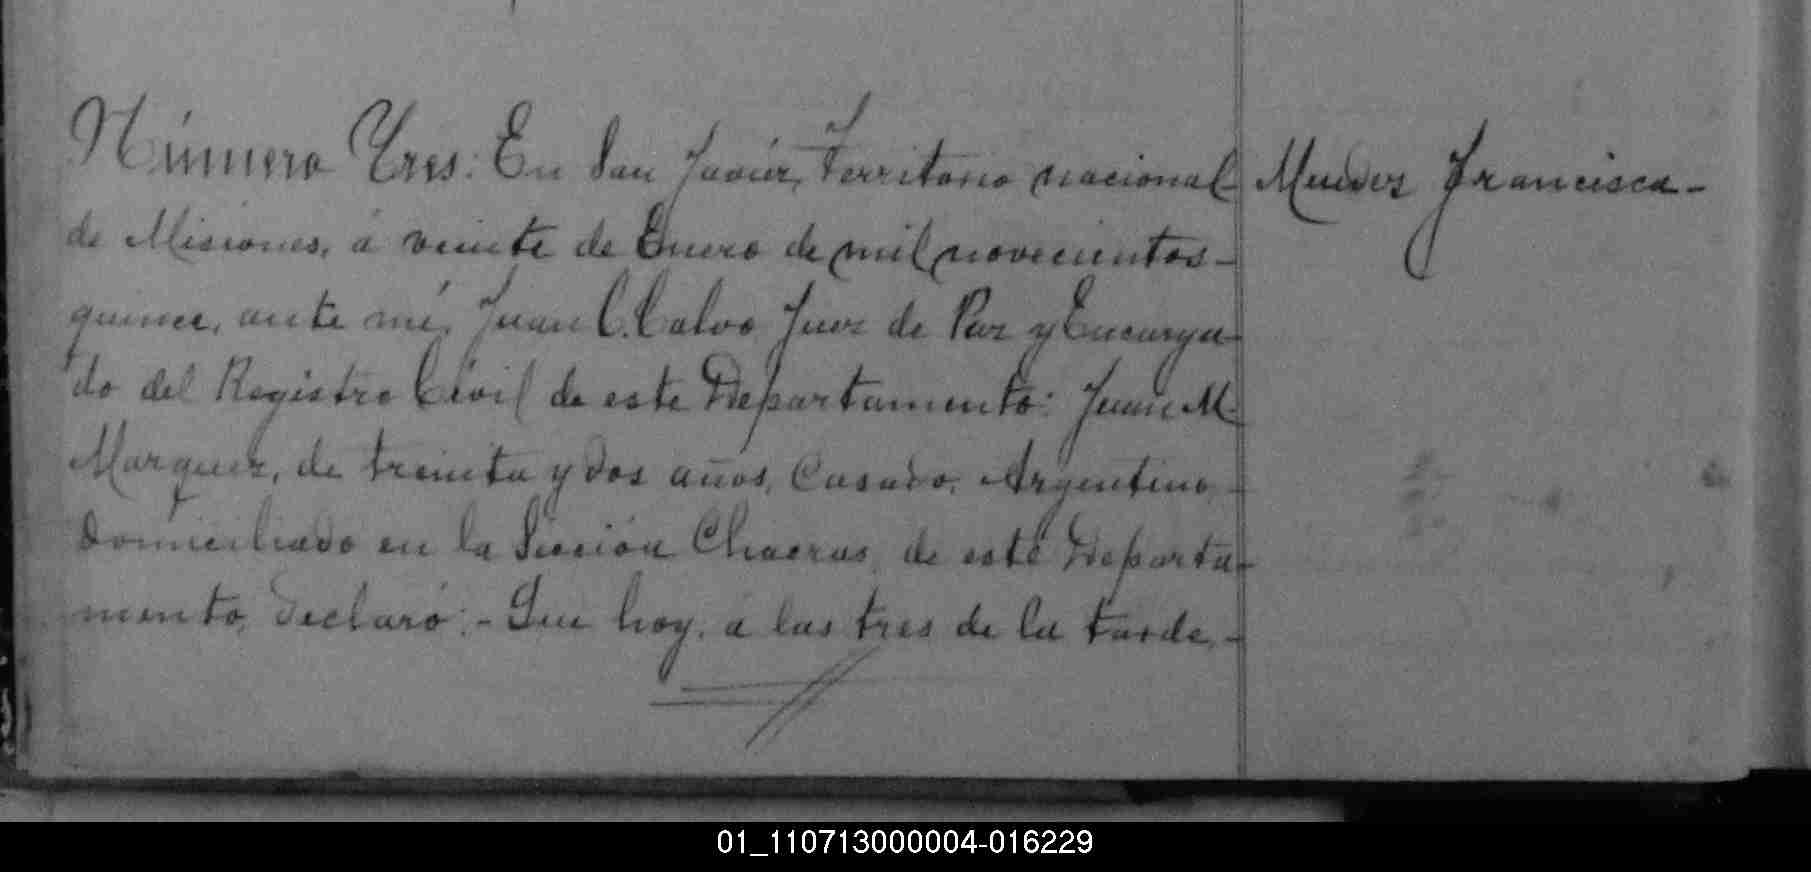 Número Tres: En San Javier, Territorio nacional- Mendez Francisca-
de Misiones, á veinte de Enero de mil novecientos-
quince, ante mí, Juan C. Calvo Juez de Paz y Encarga-
do del Registro Civil de este Departamento: Juan M.
Marquez, de treinta y dos años, Casado, Argentino,-
domiciliado en la Sección Chacras, de este Departa-
mento, declaró:- Que hoy, á las tres de la tarde,-
01_110713000004-016229